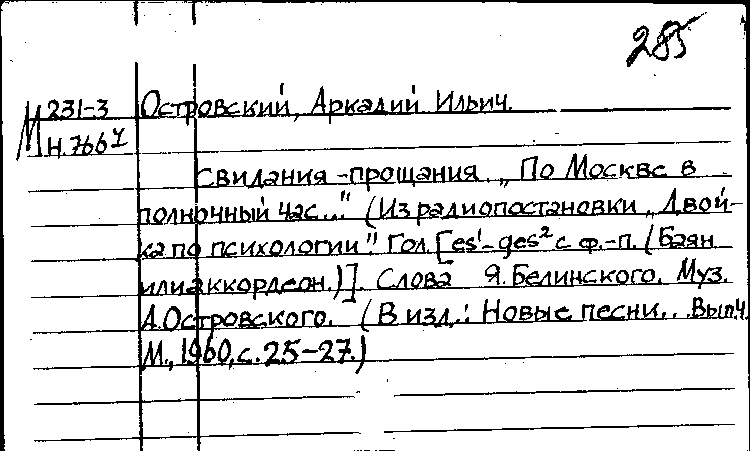 285
М 231-3 Островский, Аркадий Ильич.
Н.7667
Свидания-прощания. „По Москве в
полночный час..." (Из радиопостановки „Двой-
ка по психологии". Гол. [es¹-ges² с ф.-п. (Баян
или аккордеон.)]. Слова Я.Белинского. Муз.
А.Островского. (В изд.: Новые песни... Вып.4.
М., 1960, с. 25-27.)